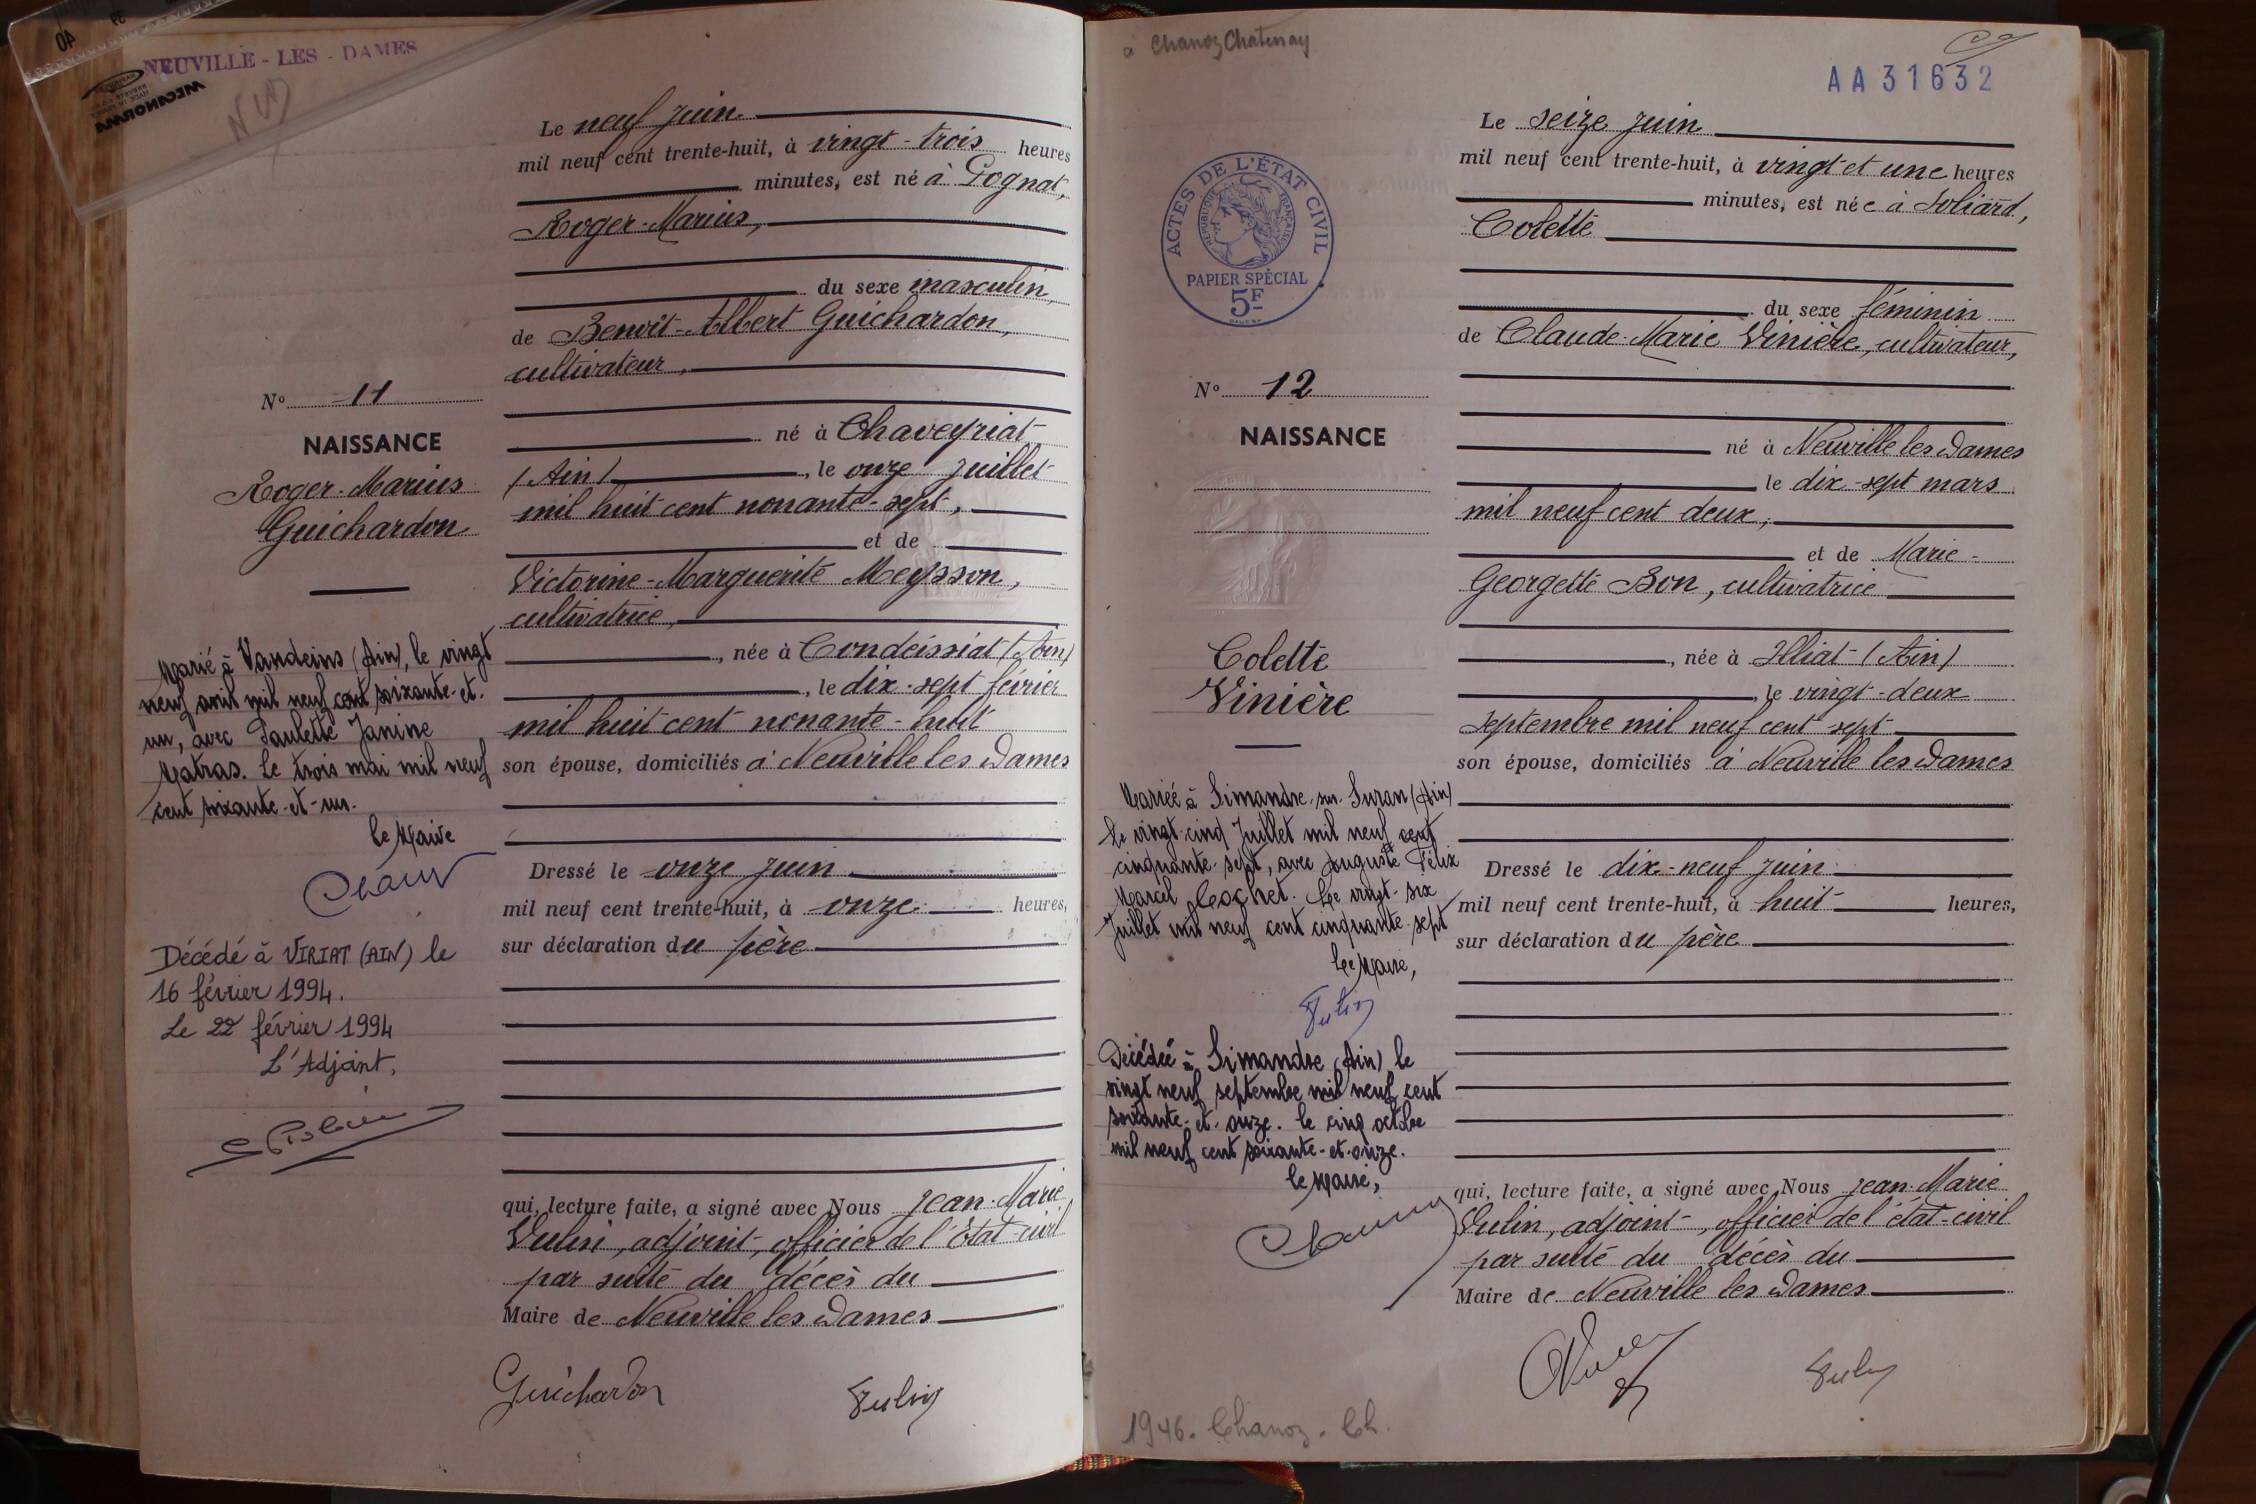 NEUVILLE - LES - DAMES
40
39
MECANORMA
Le neuf juin
mil neuf cent trente-huit, à vingt-trois heures
minutes, est né à Pognat,
Roger-Marius,
du sexe masculin
de Benoît-Albert Guichardon,
cultivateur,
né à Chaveyriat
(Ain), le onze juillet
mil huit cent nonante-sept,
et de
Victorine-Marguerite Meysson,
cultivatrice,
, née à Condeissiat (Ain)
, le dix-sept février
mil huit cent nonante-huit
son épouse, domiciliés à Neuville les Dames
Dressé le onze juin
mil neuf cent trente-huit, à onze heures,
sur déclaration du père
qui, lecture faite, a signé avec Nous Jean-Marie
Vulin, adjoint, officier de l'État-civil
par suite du décès du
Maire de Neuville les Dames
Guichardon
Vulin
No 11
NAISSANCE
Roger-Marius
Guichardon
Marié à Vandeins (Ain), le vingt
neuf avril mil neuf cent soixante-et-
un, avec Paulette Janine
Matras. Le trois mai mil neuf
cent soixante-et-un.
Le Maire
Décédé à VIRIAT (AIN) le
16 février 1994.
Le 22 février 1994
L'Adjoint,
à Chanoz Chatenay
AA31632
ACTES DE L'ÉTAT CIVIL
RÉPUBLIQUE FRANÇAISE
PAPIER SPÉCIAL
5F
Le seize juin
mil neuf cent trente-huit, à vingt et une heures
minutes, est née à Soliard,
Colette
du sexe féminin
de Claude-Marie Vinière, cultivateur,
né à Neuville les Dames
le dix-sept mars
mil neuf cent deux,
et de Marie-
Georgette Bon, cultivatrice
, née à Illiat (Ain)
, le vingt-deux
septembre mil neuf cent sept
son épouse, domiciliés à Neuville les Dames
Dressé le dix-neuf juin
mil neuf cent trente-huit, à huit heures,
sur déclaration du père
qui, lecture faite, a signé avec Nous Jean-Marie
Vulin, adjoint, officier de l'état-civil
par suite du décès du
Maire de Neuville les Dames
Vulin
No 12
NAISSANCE
Colette
Vinière
Mariée à Simandre-sur-Suran (Ain)
le vingt-cinq Juillet mil neuf cent
cinquante-sept, avec Auguste Félix
Marcel Cochet. Le vingt-six
Juillet mil neuf cent cinquante-sept
Le Maire,
Vulin
Décédée à Simandre (Ain) le
vingt neuf septembre mil neuf cent
soixante-et-onze. le cinq octobre
mil neuf cent soixante-et-onze.
le Maire,
1946. Chanoz. Ch.